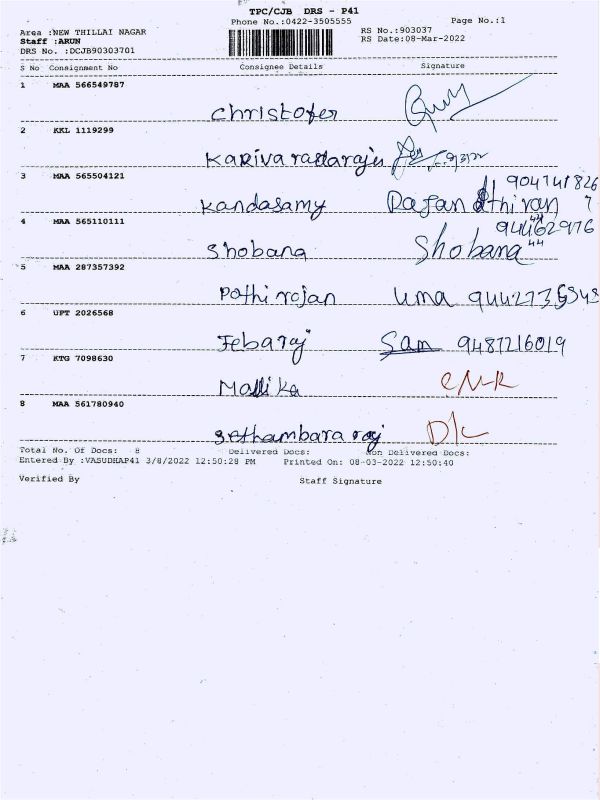 TPC/CJB DRS - P41
Phone No.:0422-3505555 Page No.:1
Area :NEW THILLAI NAGAR RS No.:903037
Staff :ARUN RS Date:08-Mar-2022
DRS No. :DCJB90303701
S No Consignment No Consignee Details Signature
1 MAA 566549787
Christofer
2 KKL 1119299
Karivaradaraju
3 MAA 565504121 904741826
Kandasamy 7
4 MAA 565110111
Shobana Shobana
5 MAA 287357392
Pothirajan Uma
6 UPT 2026568
Jebaraj Sam 9487216019
7 KTG 7098630
Mallika CNR
8 MAA 561780940
Sethambararaj D/C
Total No. Of Docs: 8 Delivered Docs: Non Delivered Docs:
Entered By :VASUDHAP41 3/8/2022 12:50:28 PM Printed On: 08-03-2022 12:50:40
Verified By Staff Signature